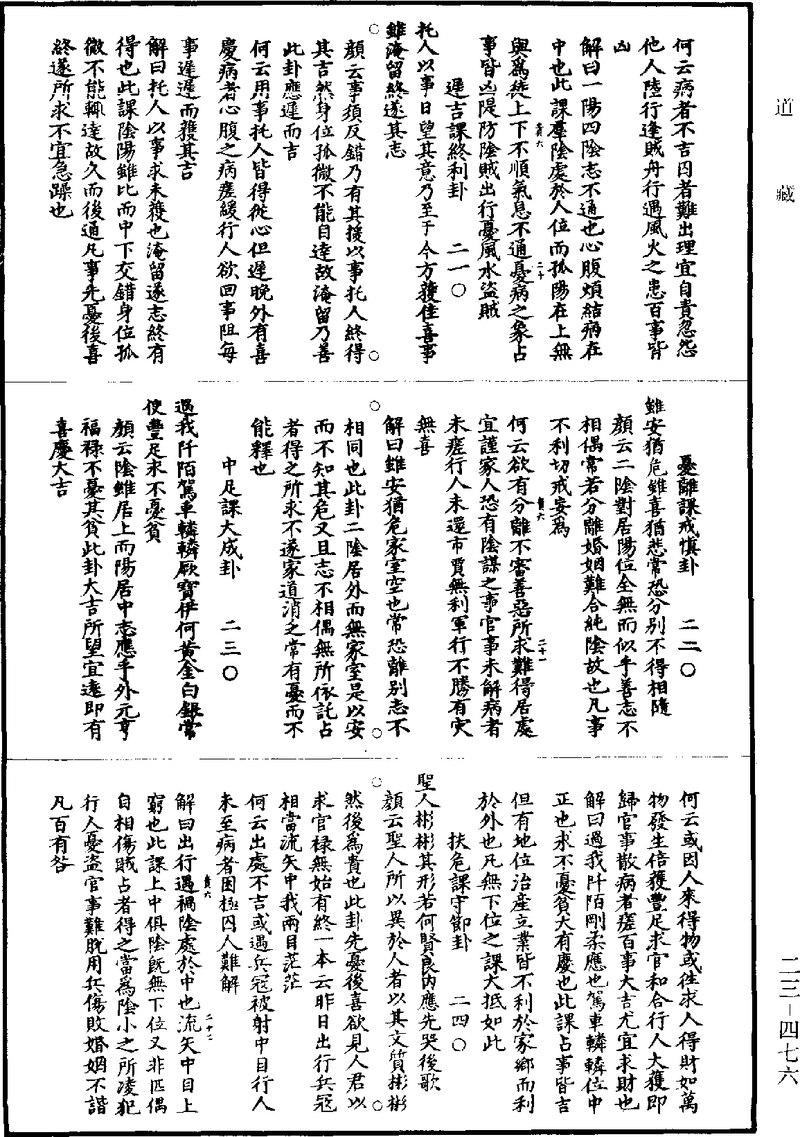 道藏
何云病者不吉囚者難出理宜自責忍怨
他人陸行逢賊舟行遇風火之患百事皆
凶
解曰一陽四陰志不通也心腹煩結病在
中也此課羣陰處於人位而孤陽在上無
與為徒上下不順氣息不通憂病之象占
事皆凶隄防陰賊出行憂風水盜賊
遲吉課終利卦 二一〇
托人以事日望其意乃至于今方獲佳喜事
雖淹留終遂其志
顏云事須反錯乃有其援以事托人終得
其吉然身位孤微不能自達故淹留乃善
此卦應遲而吉
何云用事托人皆得從心但遲晚外有喜
慶病者心腹之病瘥緩行人欲回事阻每
事遲遲而獲其吉
解曰托人以事求未獲也淹留遂志終有
得也此課陰陽雖比而中下交錯身位孤
微不能輒達故久而後通凡事先憂後喜
終遂所求不宜急躁也
憂離課戒慎卦 二二〇
雖安猶危雖喜猶悲常恐分別不得相隨
顏云二陰對居陽位全無而似乎善志不
相偶常若分離婚姻難合純陰故也凡事
不利切戒妄為
何云欲有分離不審善惡所求難得居處
宜謹家人恐有陰謀之事官事未解病者
未瘥行人未還市買無利軍行不勝有灾
無喜
解曰雖安猶危家室空也常恐離別志不
相同也此卦二陰居外而無家室是以安
而不知其危又且志不相偶無所依託占
者得之所求不遂家道消乏常有憂而不
能釋也
中足課大成卦 二三〇
過我阡陌駕車轔轔厥寶伊何黃金白銀常
使豐足求不憂貧
顏云陰雖居上而陽居中志應乎外元亨
福祿不憂其貧此卦大吉所望宜遠即有
喜慶大吉
何云或因人來得物或往求人得財如萬
物發生倍獲豐足求官和合行人大獲即
歸官事散病者瘥百事大吉尤宜求財也
解曰過我阡陌剛柔應也駕車轔轔位中
正也求不憂貧大有慶也此課占事皆吉
但有地位治產立業皆不利於家鄉而利
於外也凡無下位之課大抵如此
扶危課守節卦 二四〇
聖人彬彬其形若何賢良內應先哭後歌
顏云聖人所以異於人者以其文質彬彬
然後為貴也此卦先憂後喜欲見人君以
求官祿無始有終一本云昨日出行兵寇
相當流矢中我兩目茫茫
何云出處不吉或遇兵寇被射中目行人
未至病者困極囚人難解
解曰出行遇禍陰處於中也流矢中目上
窮也此課上中俱陰既無下位又非匹偶
自相傷賊占者得之當為陰小之所凌犯
行人憂盜官事難脫用兵傷敗婚姻不諧
凡百有咎
二三－四七六